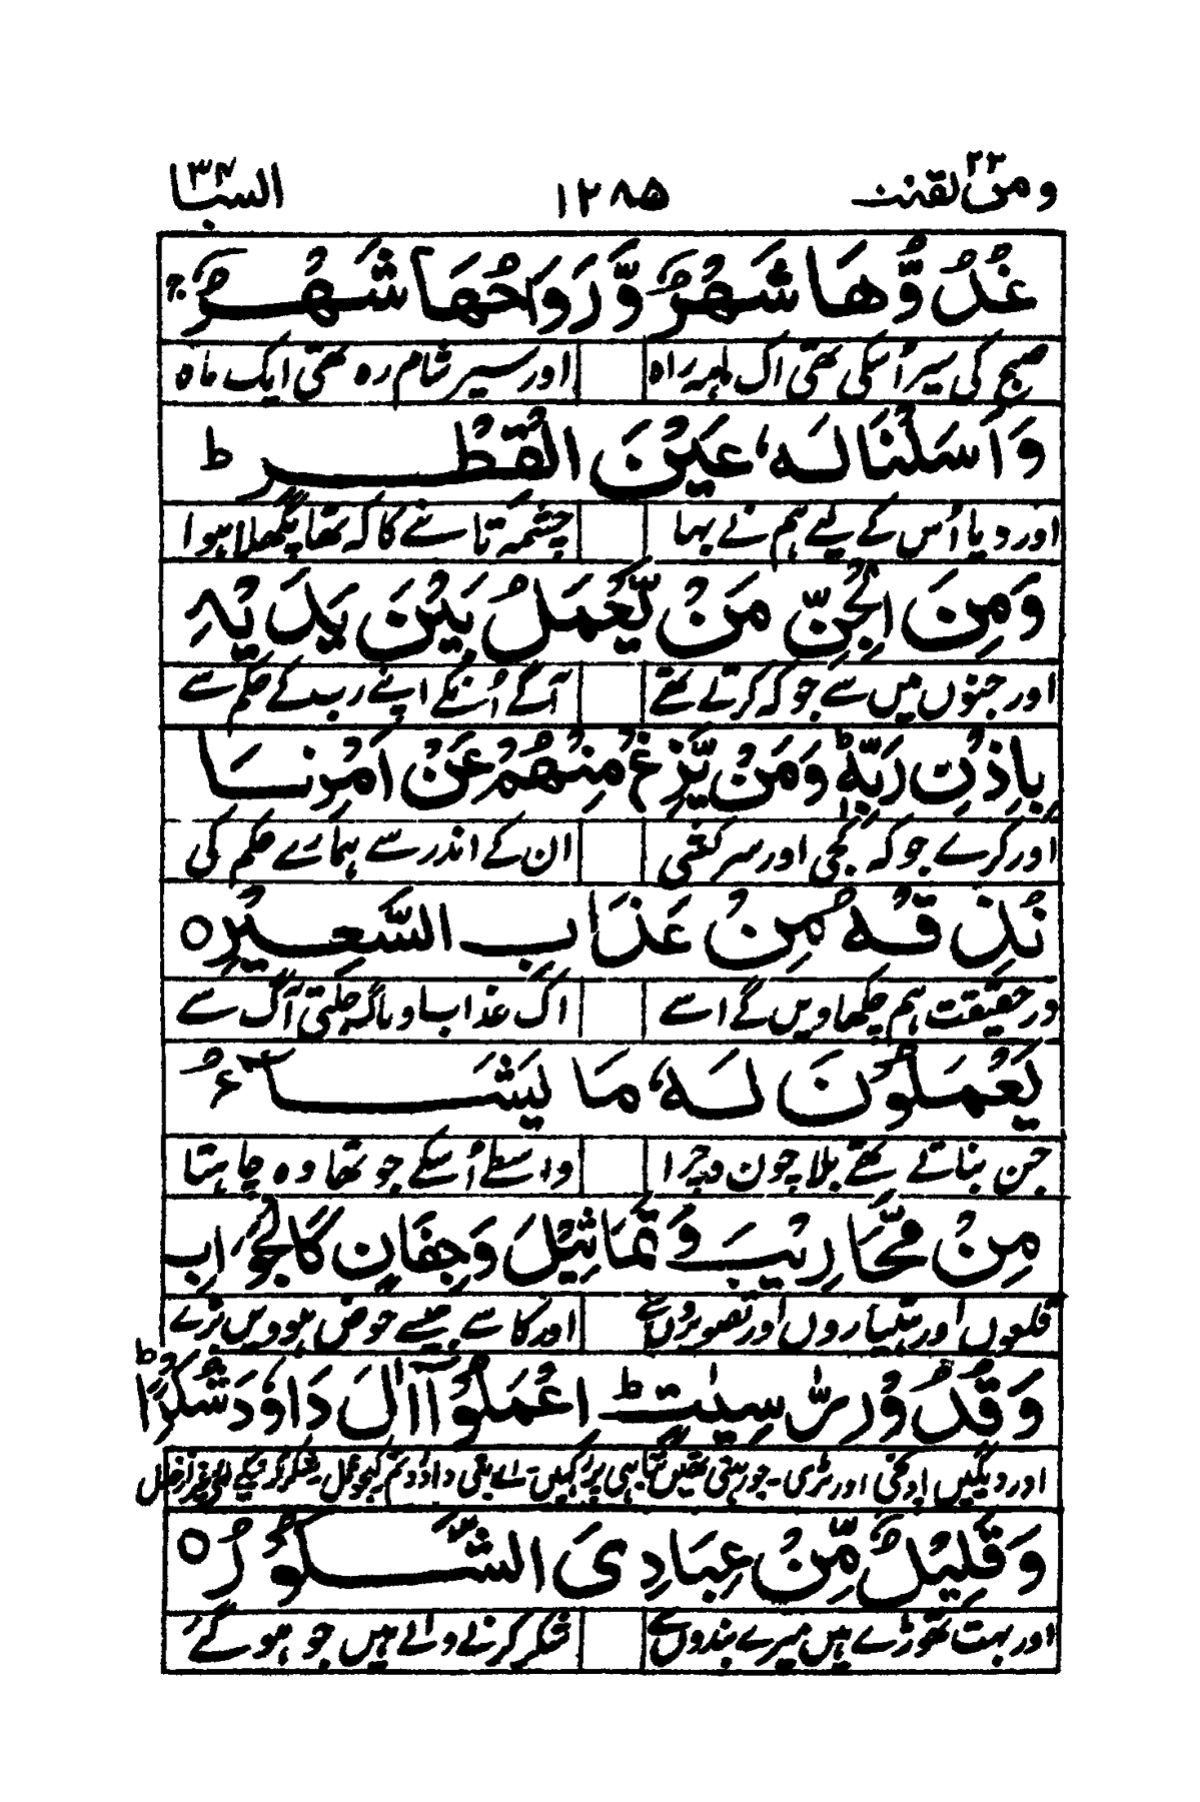 ومن یقنت ۲۲ ۱۲۸۵ السبا ۳۴
غُدُوُّهَا شَهْرٌ وَّرَوَاحُهَا شَهْرٌ ج
صبح کی سیر اُسکی تھی اک ماہہ راہ اور سیر شام رہ تھی ایک ماہ
وَاَسَلْنَا لَهٗ عَيْنَ الْقِطْرِ ط
اور دیا اُس کے لیے ہم نے بہا چشمہ تانبے کا کہ تھا پگھلا ہوا
وَمِنَ الْجِنِّ مَنْ يَّعْمَلُ بَيْنَ يَدَيْهِ
اور جنوں میں سے جو کہ کرتے تھے آگے اُنکے اپنے رب کے حکم سے
بِاِذْنِ رَبِّهٖ ط وَمَنْ يَّزِغْ مِنْهُمْ عَنْ اَمْرِنَا
اور کرے جو کہ کجی اور سرکشی ان کے اندر سے ہمارے حکم کی
نُذِقْهُ مِنْ عَذَابِ السَّعِيْرِ ○
در حقیقت ہم چکھاویں گے اسے اک عذاب جلتی آگ سے
يَعْمَلُوْنَ لَهٗ مَا يَشَآءُ
جن بناتے تھے بلا چون و چرا واسطے اُسکے جو تھا وہ چاہتا
مِنْ مَّحَارِيْبَ وَ تَمَاثِيْلَ وَجِفَانٍ كَالْجَوَابِ
قلعوں اور ہتیاروں اور تصویروں سے اور کاسے جیسے حوض ہوویں بڑے
وَقُدُوْرٍ رّٰسِيٰتٍ ط اِعْمَلُوْٓا اٰلَ دَاوٗدَ شُكْرًا ط
اور دیگیں اونچی اور بڑی۔ جو رہتی تھیں
وَقَلِيْلٌ مِّنْ عِبَادِيَ الشَّكُوْرُ ○
اور بہت تھوڑے ہیں میرے بندوں سے شکر کرنے والے ہیں جو ہو گئے